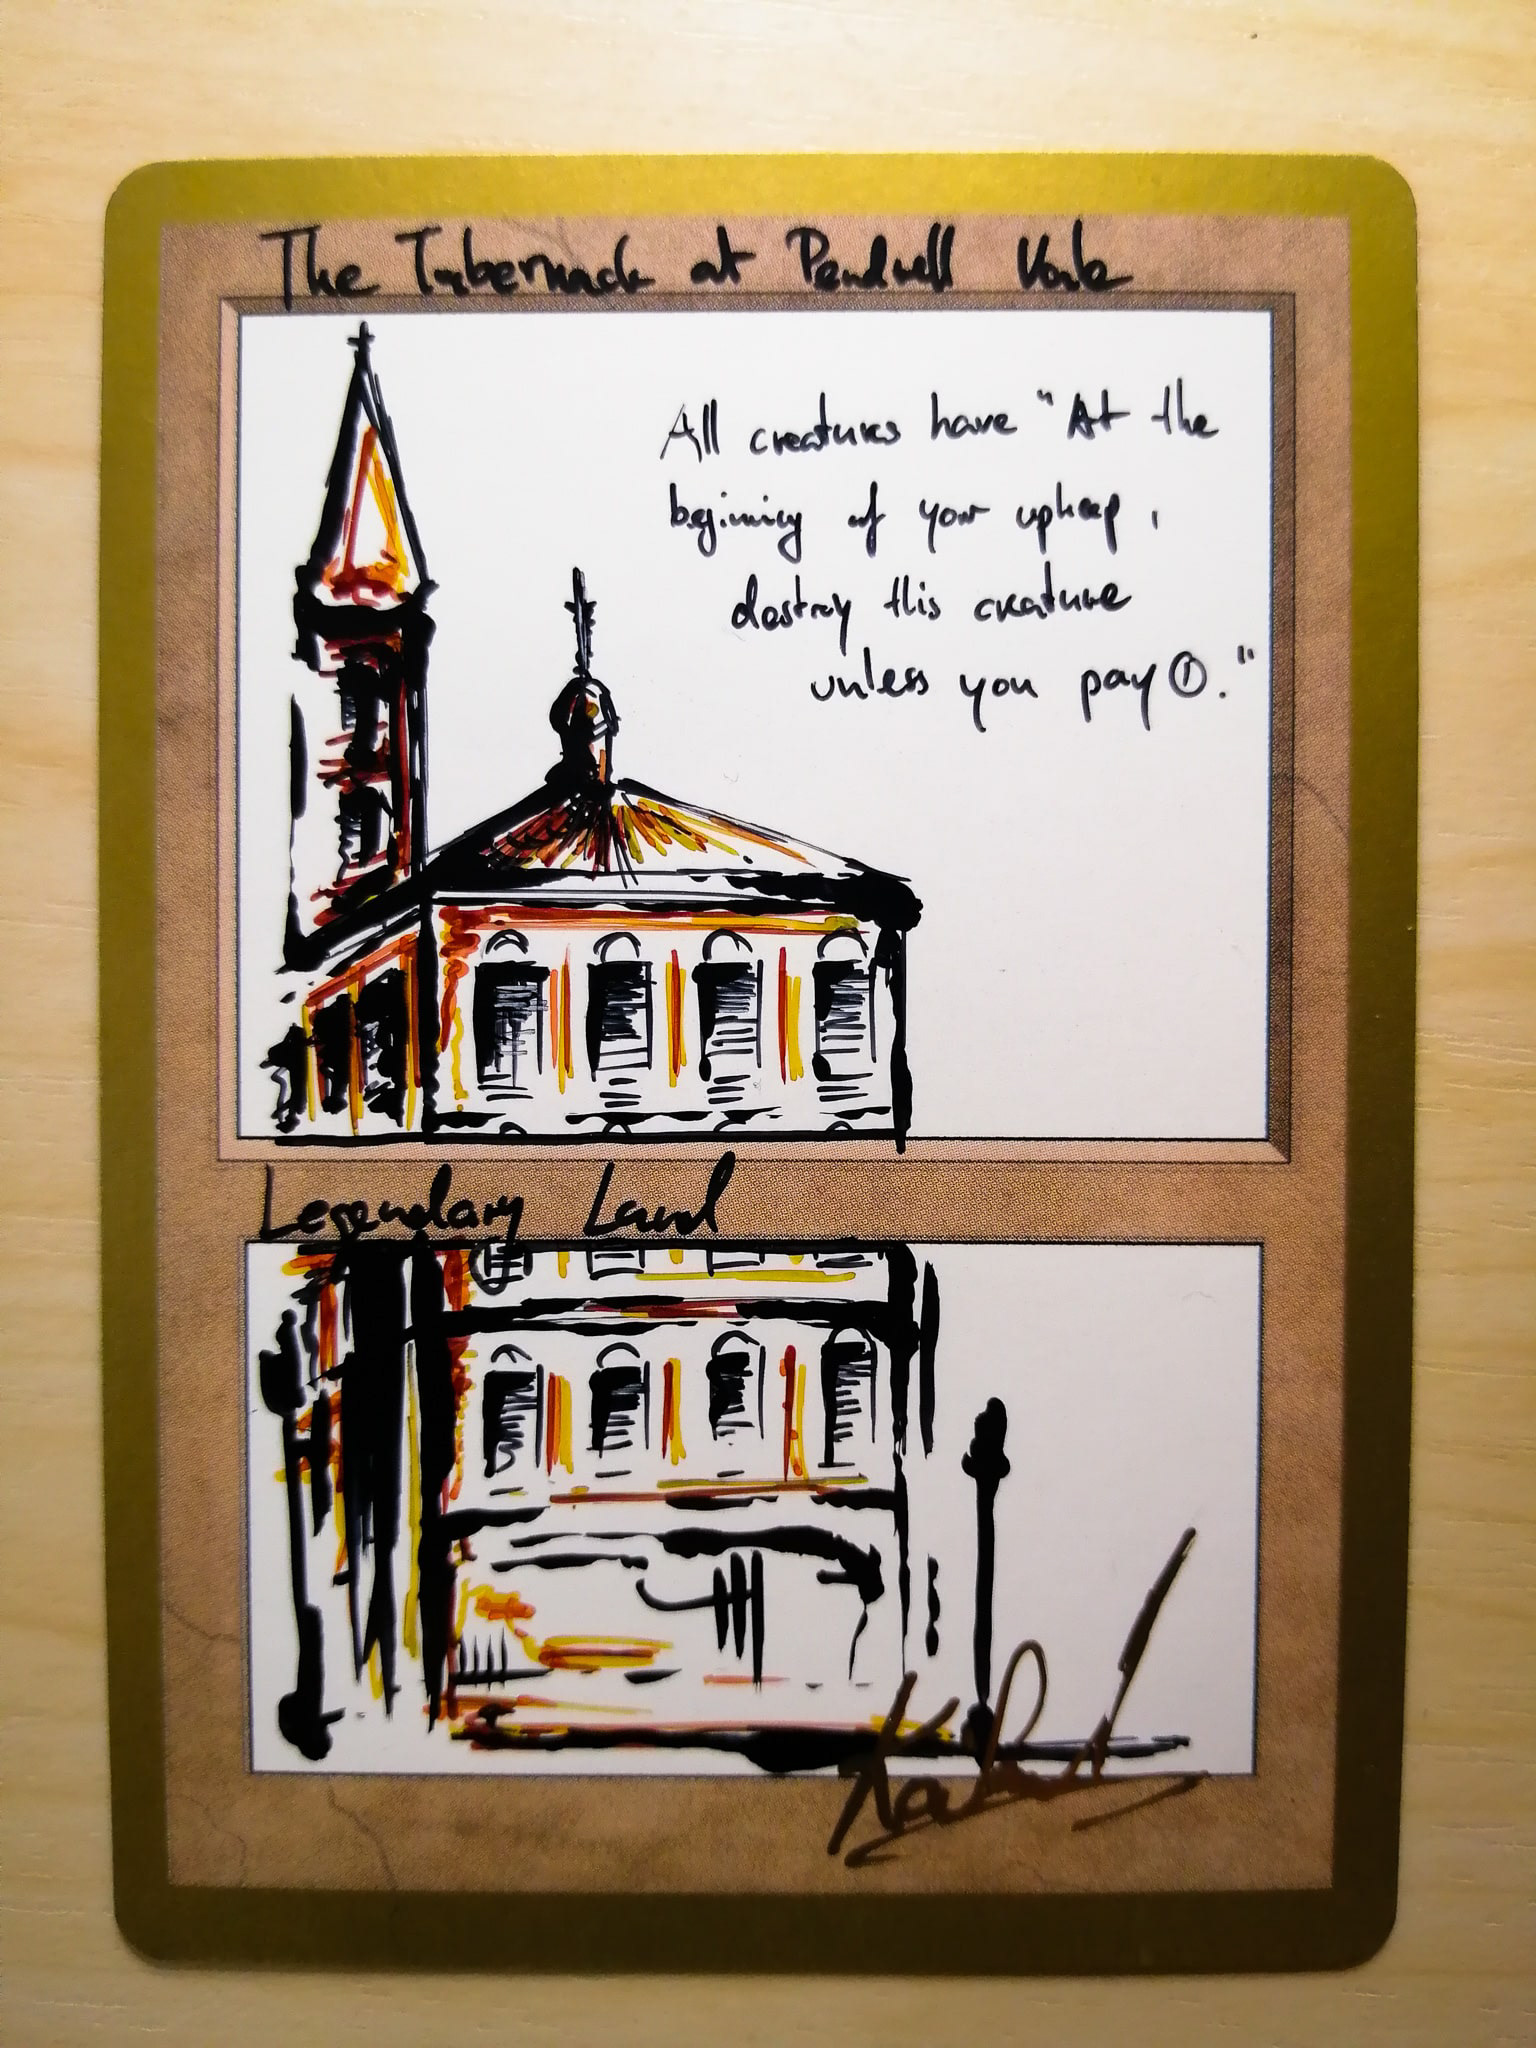 The Tabernacle at Pendrell Vale
All creatures have "At the
begining of your upkeep,
destroy this creature
unless you pay ①."
Legendary Land